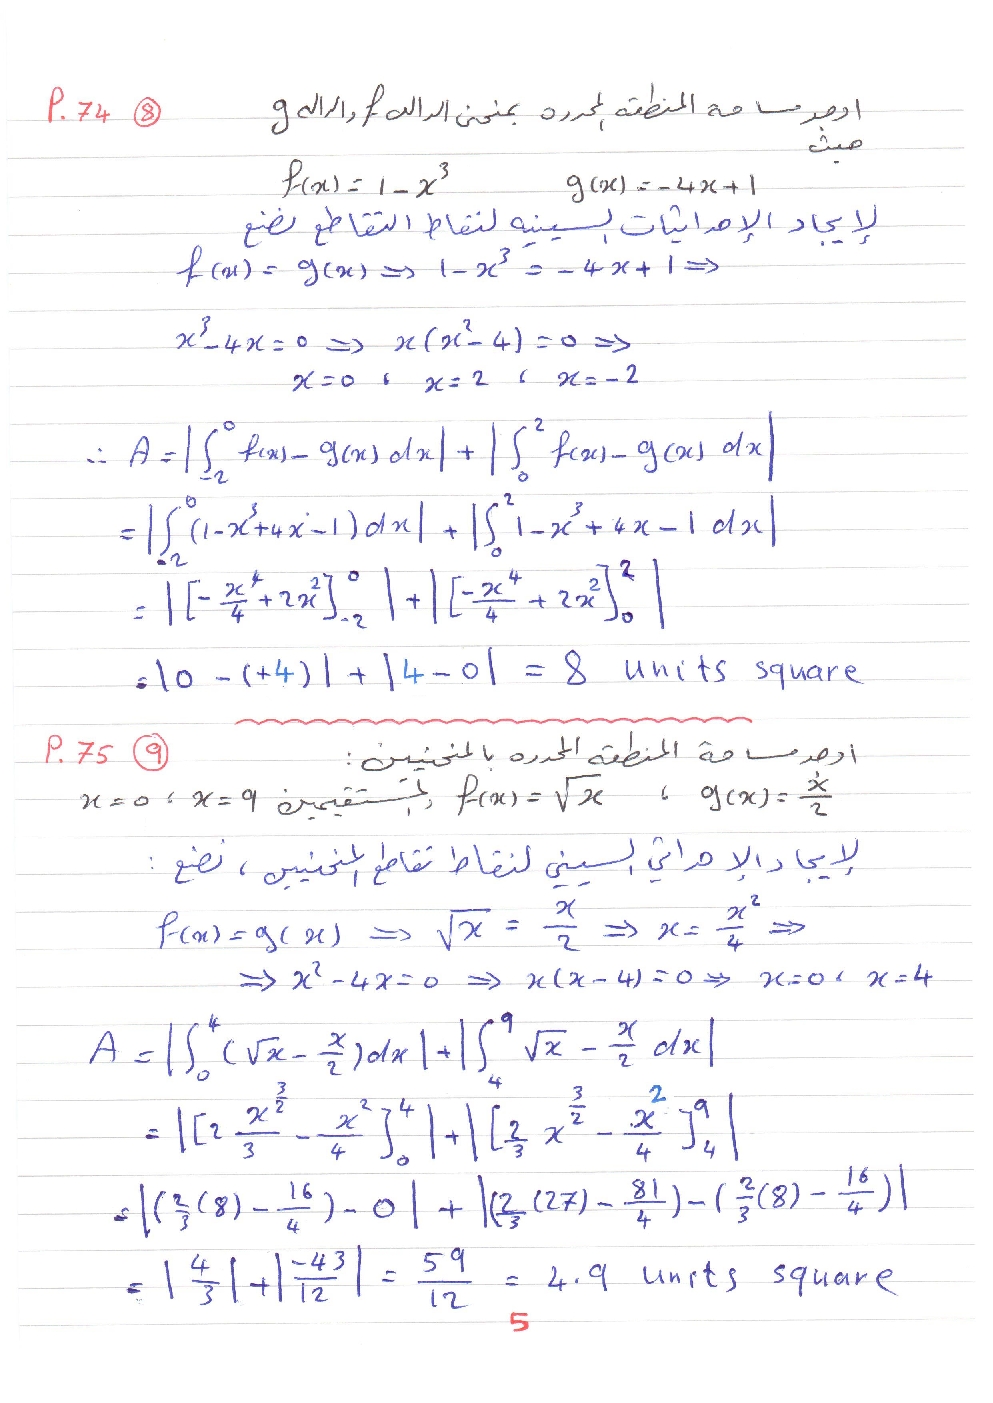 P. 74 ⑧ اوجد مساحة المنطقه المحدده بمنحنى الداله f والداله g
حيث
f(x) = 1 - x³ g(x) = -4x + 1
لإيجاد الإحداثيات السينيه لنقاط التقاطع نضع
f(x) = g(x) ⇒ 1 - x³ = -4x + 1 ⇒
x³ - 4x = 0 ⇒ x(x² - 4) = 0 ⇒
x = 0 ، x = 2 ، x = -2
∴ A = |∫₋₂⁰ f(x) - g(x) dx| + |∫₀² f(x) - g(x) dx|
= |∫₋₂⁰ (1 - x³ + 4x - 1) dx| + |∫₀² 1 - x³ + 4x - 1 dx|
= |[-x⁴/4 + 2x²]₋₂⁰| + |[-x⁴/4 + 2x²]₀²|
= |0 - (+4)| + |4 - 0| = 8 units square
P. 75 ⑨ اوجد مساحة المنطقه المحدده بالمنحنيين :
f(x) = √x ، g(x) = x/2 والمستقيمين x = 0 ، x = 9
لإيجاد الإحداثي السيني لنقاط تقاطع المنحنيين ، نضع :
f(x) = g(x) ⇒ √x = x/2 ⇒ x = x²/4 ⇒
⇒ x² - 4x = 0 ⇒ x(x - 4) = 0 ⇒ x = 0 ، x = 4
A = |∫₀⁴ (√x - x/2) dx| + |∫₄⁹ √x - x/2 dx|
= |[2 x^(3/2)/3 - x²/4]₀⁴| + |[2/3 x^(3/2) - x²/4]₄⁹|
= |(2/3 (8) - 16/4) - 0| + |(2/3 (27) - 81/4) - (2/3 (8) - 16/4)|
= |4/3| + |-43/12| = 59/12 = 4.9 units square
5